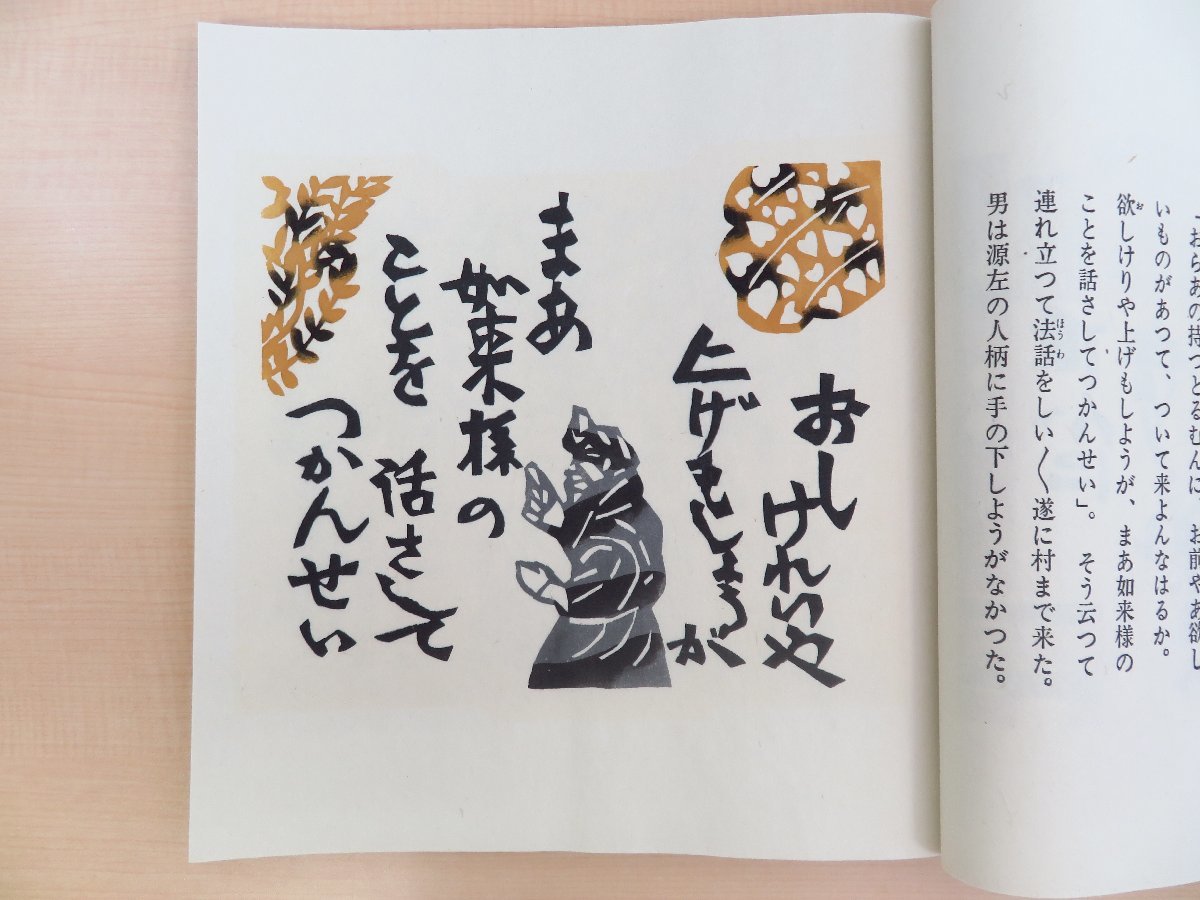 おらあの持つとるむんに、お前やあ欲し
いものがあつて、ついて来よんなはるか。
欲しけりや上げもしようが、まあ如来様の
ことを話さしてつかんせい」。そう云つて
連れ立つて法話をしい〱遂に村まで来た。
男は源左の人柄に手の下しようがなかつた。
おしけれいや
上げもしようが
まあ
如来様の
ことを 話さして
つかんせい